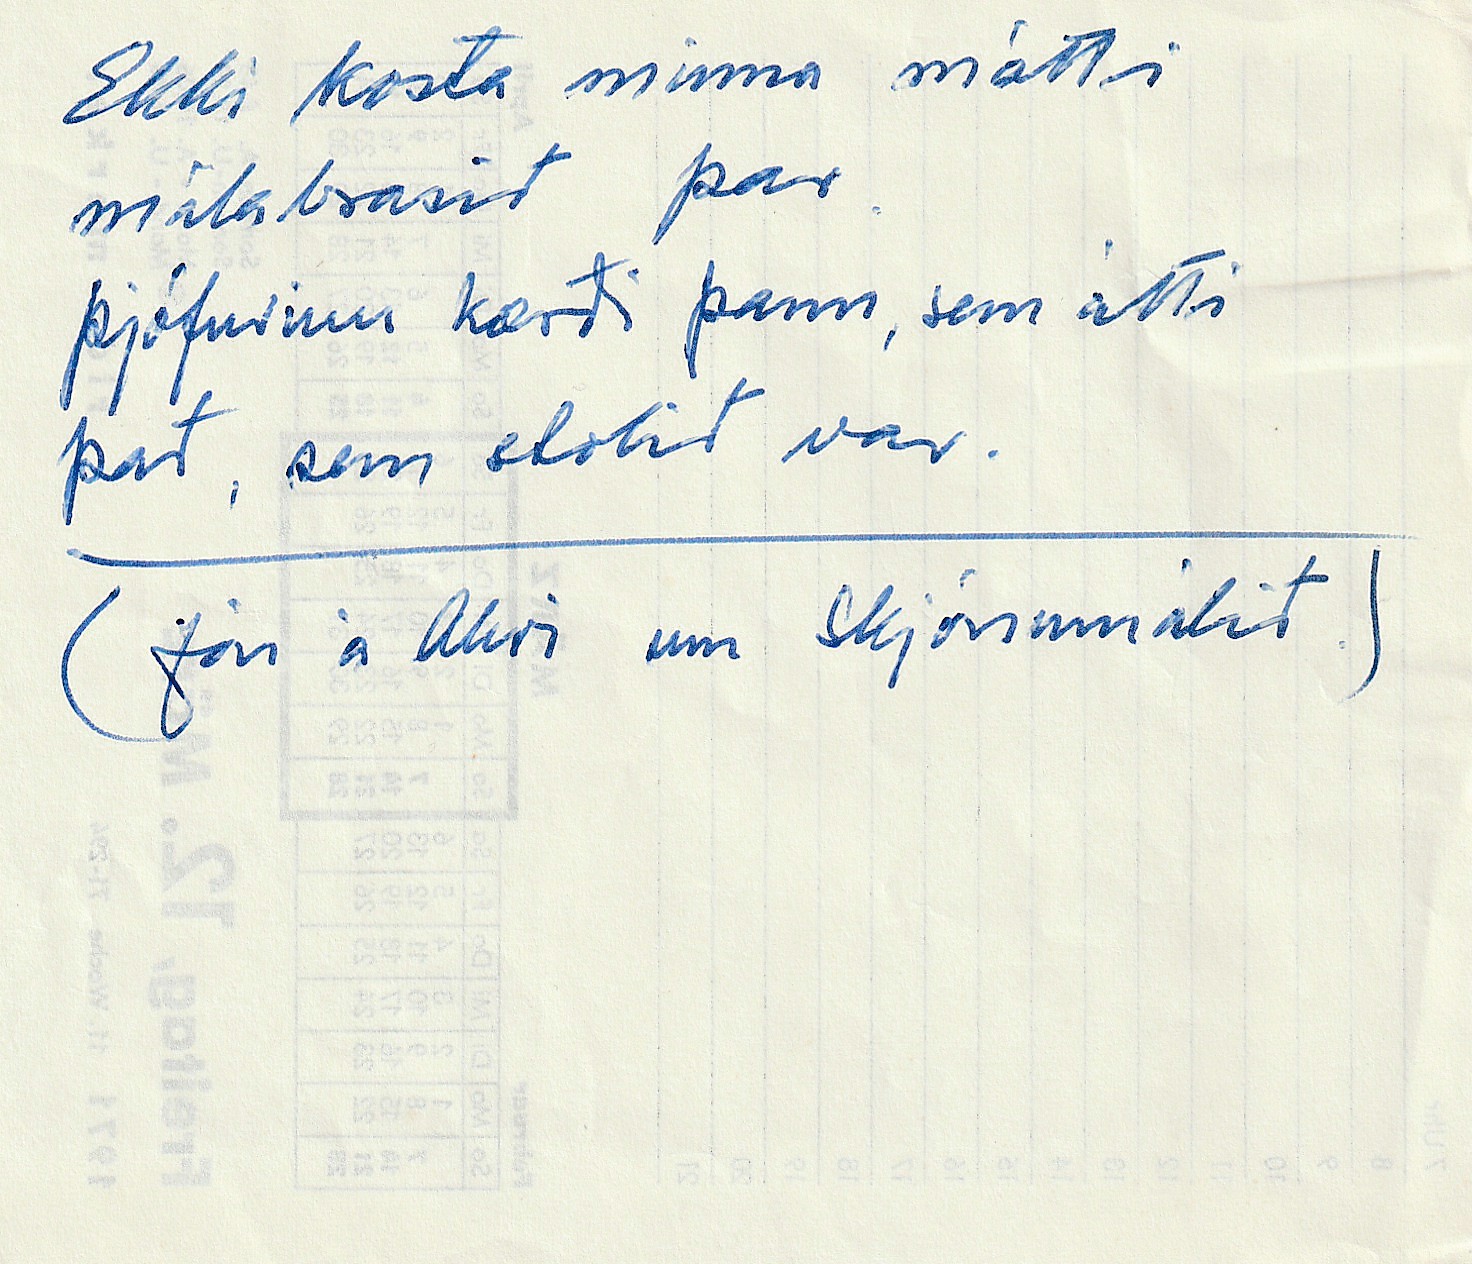 Ekki kosta minna mátti
málabrasið þar.
þjófurinn kærði þann, sem átti
það, sem stolið var.
(Jón á Akri um Skjónumálið.)